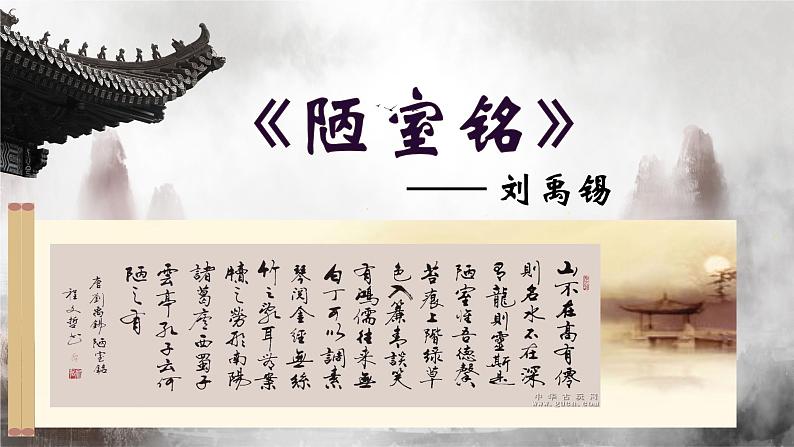 《陋室铭》
—— 刘禹锡
山不在高有僊
則名水不在深
有龍則靈斯是
陋室惟吾德馨
苔痕上階綠草
色入簾青談笑
有鴻儒往來無
白丁可以調素
琴閱金經無絲
竹之亂耳無案
牘之勞形南陽
諸葛廬西蜀子
雲亭孔子云何
陋之有
唐劉禹錫陋室銘
程文哲书
中华古玩网
www.gucn.com